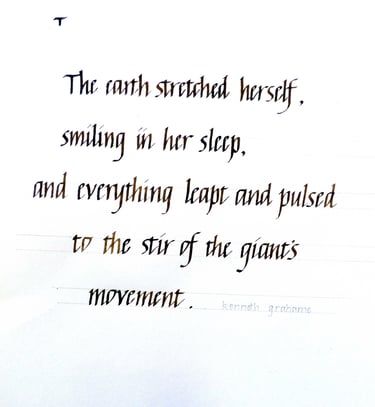 T
The earth stretched herself,
smiling in her sleep,
and everything leapt and pulsed
to the stir of the giant's
movement. kenneth grahame